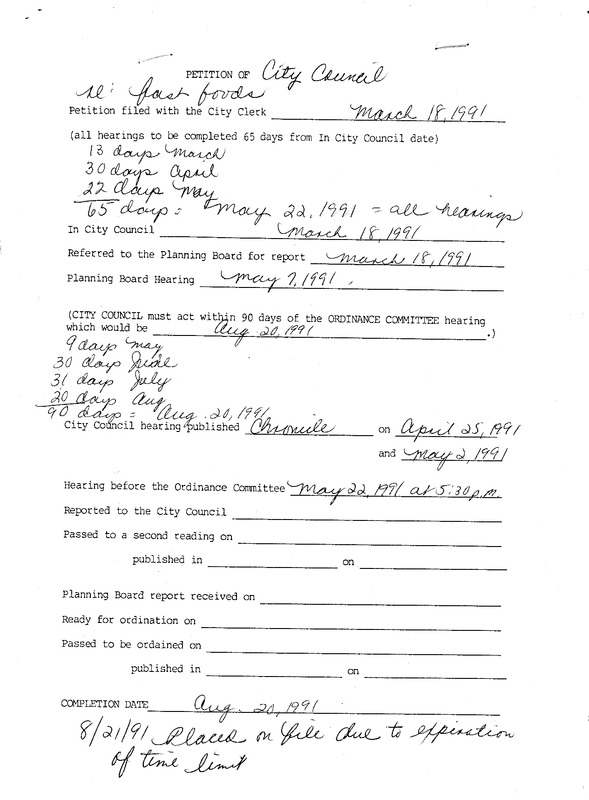 PETITION OF City Council
re: fast foods
Petition filed with the City Clerk March 18, 1991
(all hearings to be completed 65 days from In City Council date)
13 days March
30 days April
22 days May
65 days = May 22, 1991 = all hearings
In City Council March 18, 1991
Referred to the Planning Board for report March 18, 1991
Planning Board Hearing May 7, 1991
(CITY COUNCIL must act within 90 days of the ORDINANCE COMMITTEE hearing
which would be Aug. 20, 1991 .)
9 days May
30 days June
31 days July
20 days Aug
90 days = Aug. 20, 1991
City Council hearing published Chronicle on April 25, 1991
and May 2, 1991
Hearing before the Ordinance Committee May 22, 1991 at 5:30 p.m.
Reported to the City Council
Passed to a second reading on
published in on
Planning Board report received on
Ready for ordination on
Passed to be ordained on
published in on
COMPLETION DATE Aug. 20, 1991
8/21/91 Placed on file due to expiration
of time limit